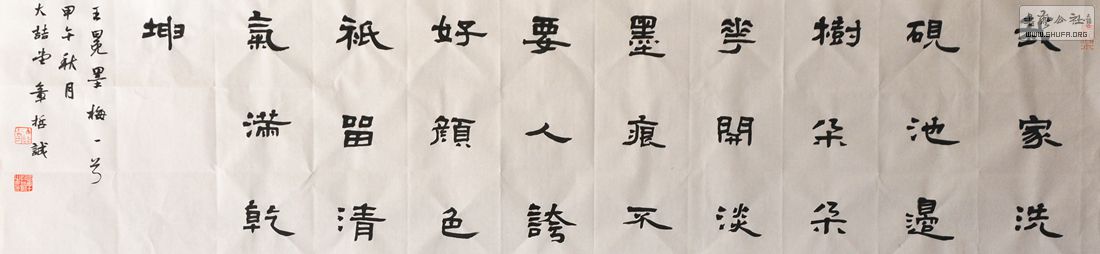 我家洗
硯池邊
樹朵朵
華開淡
墨痕不
要人誇
好顏色
祇留清
氣滿乾
坤
王冕墨梅一首
甲午秋月
大喆堂章哲誠
书艺公社
WWW.SHUFA.ORG